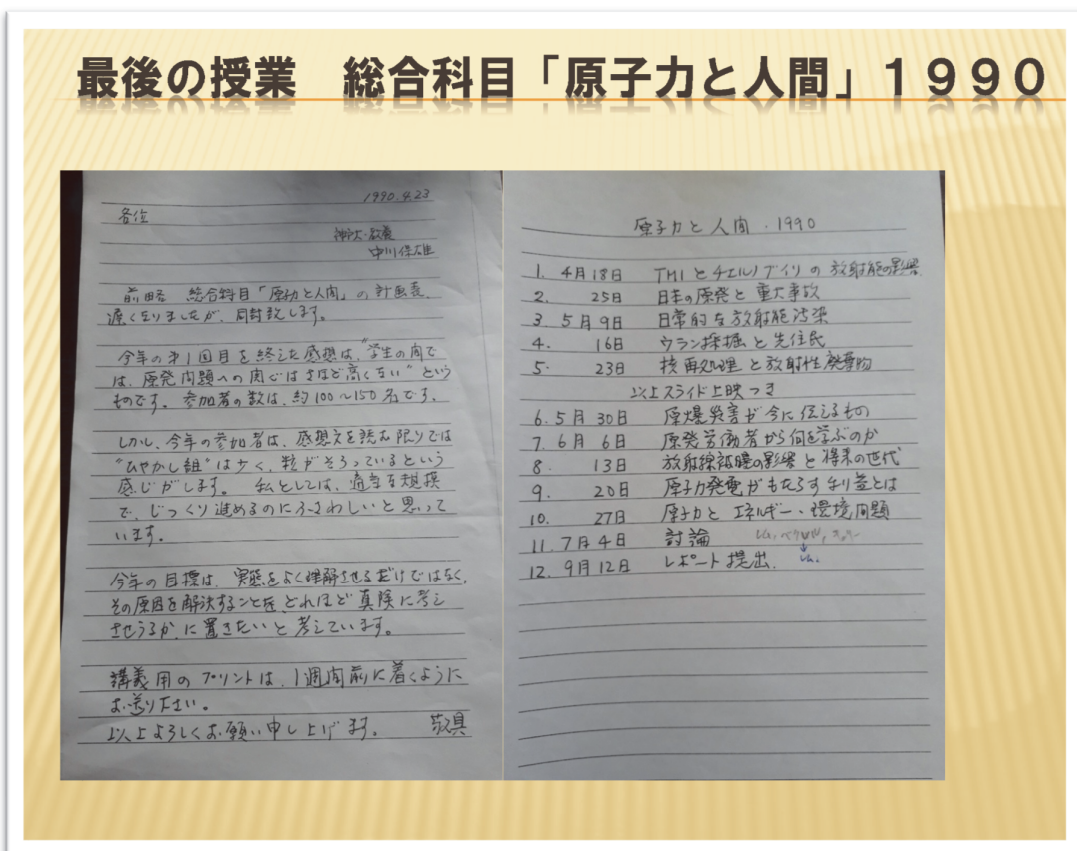 最後の授業　総合科目「原子力と人間」１９９０
1990.4.23
各位
神大・教養
中川保雄
前略　総合科目「原子力と人間」の計画表、
遅くなりましたが、同封致します。
今年の第1回目を終えた感想は、"学生の間で
は、原発問題への関心はさほど高くない"という
ものです。参加者の数は、約100～150名です。
しかし、今年の参加者は、感想文を読む限りでは
"ひやかし組"は少く、粒がそろっているという
感じがします。私としては、適当な規模
で、じっくり進めるのにふさわしいと思って
います。
今年の目標は、実態をよく理解させるだけではなく、
その原因を解決することを、どれほど真険に考え
させうるか、に置きたいと考えています。
講義用のプリントは、1週間前に着くように
お送り下さい。
以上よろしくお願い申し上げます。　敬具
原子力と人間・1990
1. 4月18日　TMIとチェルノブイリの放射能の影響
2. 25日　日本の原発と重大事故
3. 5月9日　日常的な放射能汚染
4. 16日　ウラン採掘と先住民
5. 23日　核再処理と放射性廃棄物
以上スライド上映つき
6. 5月30日　原爆災害が今に伝えるもの
7. 6月6日　原発労働者から何を学ぶのか
8. 13日　放射線被曝の影響と将来の世代
9. 20日　原子力発電がもたらす利益とは
10. 27日　原子力とエネルギー・環境問題
11. 7月4日　討論
12. 9月12日　レポート提出.